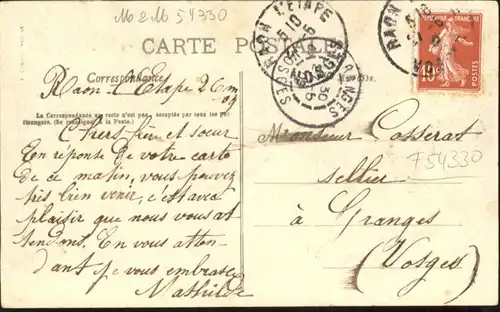 Mo 2 Mo 54330
CARTE POSTALE
RAON L'ETAPE
5 10
VOSGES
GRANGES
VOSGES
RAON
10
POSTES
Correspondance
Raon l'Etape 26 m
La Correspondance au recto n'est pas acceptée par tous les pays
étrangers. (Se renseigner à la Poste.)
Chers frère et soeur
En réponse de votre carte
de ce matin, vous pouvez
très bien venir, c'est avec
plaisir que nous vous at
tendons. En vous atten-
dant je vous embrasse
Mathilde
Monsieur Cosserat
F54330
sellier
à Granges
(Vosges)